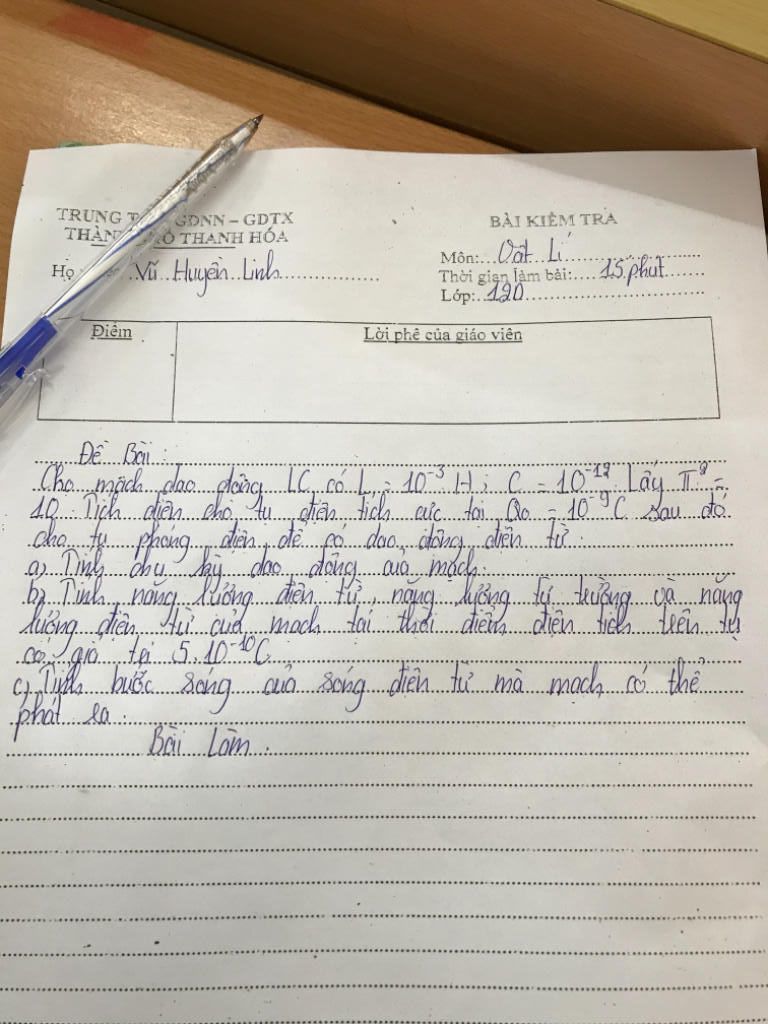 TRUNG T GDNN – GDTX
THÀN Ố THANH HÓA
Họ Vũ Huyền Linh
BÀI KIỂM TRA
Môn: Vật Lí
Thời gian làm bài: 15 phút
Lớp: 12D
Điểm
Lời phê của giáo viên
Đề Bài:
Cho mạch dao động LC có L = 10⁻³ H; C = 10⁻¹² Lấy π² =
10. Tích điện cho tụ điện tích cực tại Qo = 10⁻⁹ C sau đó
cho tụ phóng điện để có dao động điện từ.
a) Tính chu kỳ dao động của mạch.
b) Tính năng lượng điện từ, năng lượng từ trường và năng
lượng điện từ của mạch tại thời điểm điện tích trên tụ
có giá trị 5.10⁻¹⁰C
c) Tính bước sóng của sóng điện từ mà mạch có thể
phát ra.
Bài Làm.